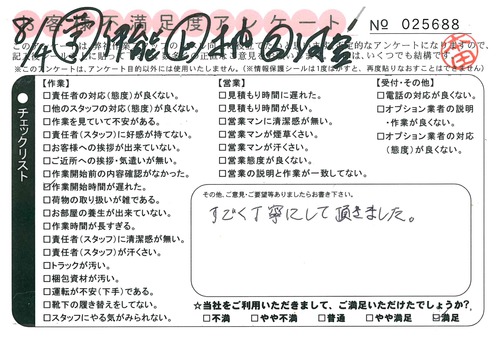 客様不満足度アンケート
№ 025688
※このアンケートは、アンケート目的以外には使用いたしません。(※情報保護シールは1度はがすと、再度貼りなおすことはできません)
チェックリスト
【作業】
□責任者の対応(態度)が良くない。
□他のスタッフの対応(態度)が良くない。
□作業を見ていて不安がある。
□責任者(スタッフ)に好感が持てない。
□お客様への挨拶が出来ていない。
□ご近所への挨拶・気遣いが無い。
□作業開始前の内容確認がなかった。
☑作業開始時間が遅れた。
□荷物の取り扱いが雑である。
□お部屋の養生が出来ていない。
□作業時間が長すぎる。
□責任者(スタッフ)に清潔感が無い。
□責任者(スタッフ)が汗くさい。
□トラックが汚い。
□梱包資材が汚い。
□運転が不安(下手)である。
□靴下の履き替えをしてない。
□スタッフにやる気がみられない。
【営業】
□見積もり時間に遅れた。
□見積もり時間が長い。
□営業マンに清潔感が無い。
□営業マンが煙草くさい。
□営業マンが汗くさい。
□営業態度が良くない。
□営業の説明と作業が一致してない。
【受付・その他】
□電話の対応が良くない。
□オプション業者の説明
・作業が良くない。
□オプション業者の対応
(態度)が良くない。
その他、ご意見・ご要望等ありましたらお書き下さい。
すごく丁寧にして頂きました。
☆当社をご利用いただきまして、ご満足いただけたでしょうか?
□不満 □やや不満 □普通 □やや満足 ☑満足